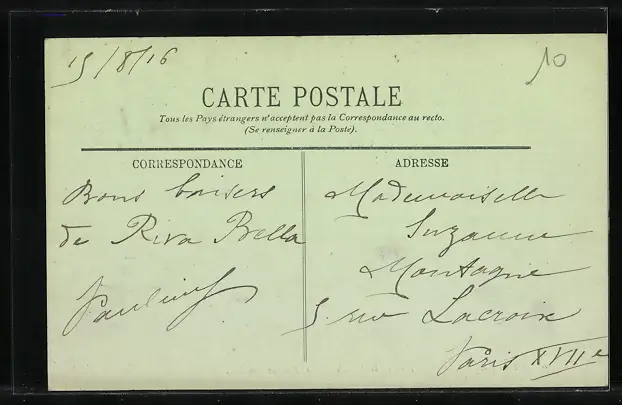 15/8/16
10
CARTE POSTALE
Tous les Pays étrangers n'acceptent pas la Correspondance au recto.
(Se renseigner à la Poste).
CORRESPONDANCE
Bons baisers
de Riva Bella
ADRESSE
Mademoiselle
Suzanne
Montagne
5 rue Lacroix
Paris XVIIe